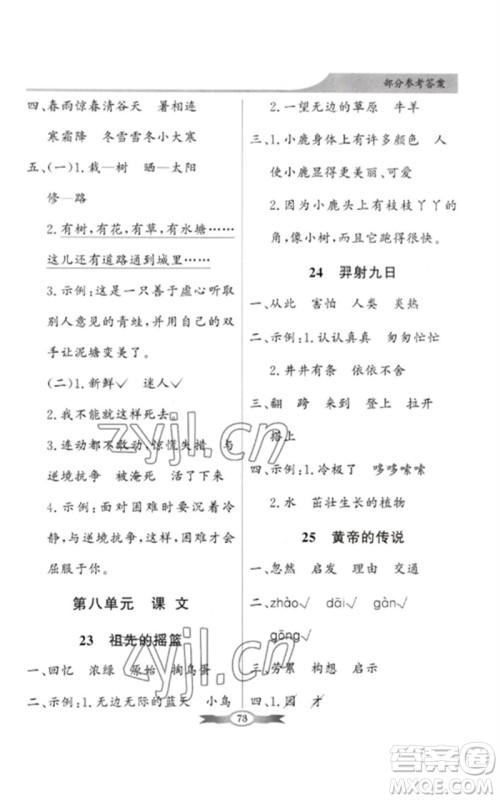 部分参考答案
四、春雨惊春清谷天　暑相连
寒霜降　冬雪雪冬小大寒
五、(一)1.栽—树　晒—太阳
修—路
2.有树,有花,有草,有水塘……
这儿还有道路通到城里……
3.示例:这是一只善于虚心听取
别人意见的青蛙,并用自己的双
手让泥塘变美了。
(二)1.新鲜✓　迷人✓
2.我不能就这样死去。
3.连动都不敢动,惊慌失措　与
逆境抗争　被淹死　活下来
4.示例:面对困难时要保持冷
静,与逆境抗争,困难才会有
屈服于你。
第八单元　课 文
23　祖先的摇篮
一、回忆　浓绿　原始　掏鸟蛋
二、示例:1.无边无际的蓝天　小鸟
2.一望无边的草原　牛羊
三、1.小鹿身体上有许多颜色　人
使小鹿显得非常美丽。
2.因为小鹿头上有枝枝丫丫的
角,像小树,很快乐。
24　羿射九日
一、从此　害怕　人类　炎热
二、示例:1.认认真真　匆匆忙忙
2.井井有条　依依不舍
三、翻　跨　来到　登上　拉开
搭上
四、示例:1.冷极了　哆哆嗦嗦
2.水　茁壮生长的植物
25　黄帝的传说
一、忽然　启发　理由　交通
二、zhào✓　dāi✓　gàn✓
gōng✓
三、劳累　指南　式样　兴奋
四、1.园　才
73
zyjl.cn
zyjl.cn
作业精灵
答案圈
MXQE.COM